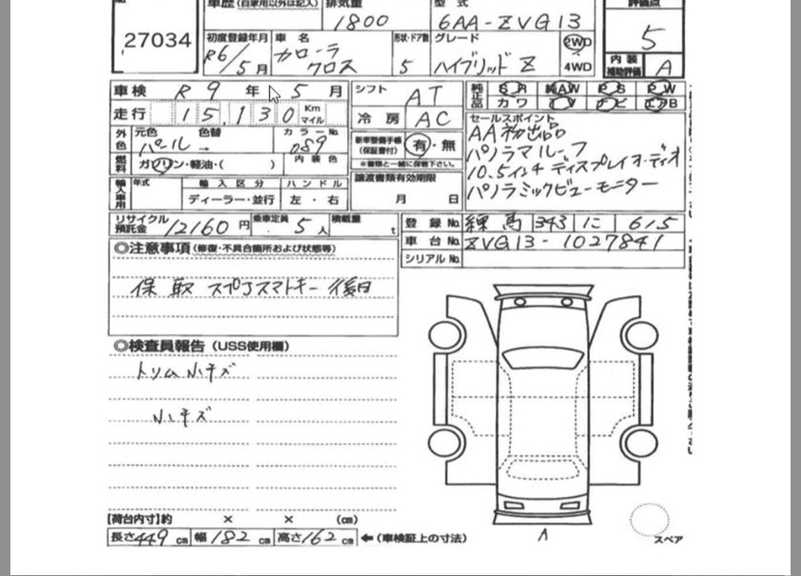 車歴 (自家用以外は記入) 排気量 型式 評価点
1800 6AA-ZVG13 5
27034
初度登録年月 車名 形状・ドア数 グレード 2WD
R6/5月 カローラクロス 5 ハイブリッド Z 4WD
内装補助評価 A
車検 R9年5月 シフト AT 純正品 SR AW PS PW
カワ TV ナビ エアB
走行 15,130 Km マイル 冷房 AC
セールスポイント
AA初出品
外色 元色 色替 カラーNo.
パール → 089
新車整備手帳(保証書付) 有・無
※書類と一緒に保管下さい。
パノラマルーフ
10.5インチディスプレイオーディオ
パノラミックビューモニター
燃料 ガソリン・軽油・( ) 内装色
輸入車用 年式 輸入区分 ハンドル
ディーラー・並行 左・右
譲渡書類有効期限
月 日
リサイクル預託金 12160円 乗車定員 5人 積載量 t
登録No. 練馬 343 に 615
車台No. ZVG13-1027841
シリアルNo.
◎注意事項 (修復・不具合箇所および状態等)
保 取 スペアスマートキー 後日
◎検査員報告 (USS使用欄)
トリム小キズ
小キズ
【荷台内寸】約 × × (cm)
長さ449cm 幅182cm 高さ162cm ←(車検証上の寸法)
スペア